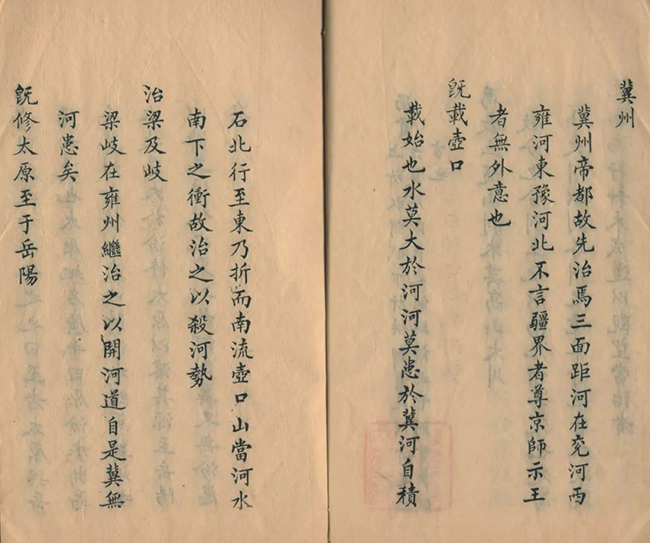 冀州
冀州帝都故先治焉三面距河在兖河西
雍河東豫河北不言疆界者尊京師示王
者無外意也
旣載壺口
載始也水莫大於河河莫患於冀河自積
石北行至東乃折而南流壺口山當河水
南下之衝故治之以殺河勢
治梁及岐
梁岐在雍州繼治之以開河道自是冀無
河患矣
旣修太原至于岳陽